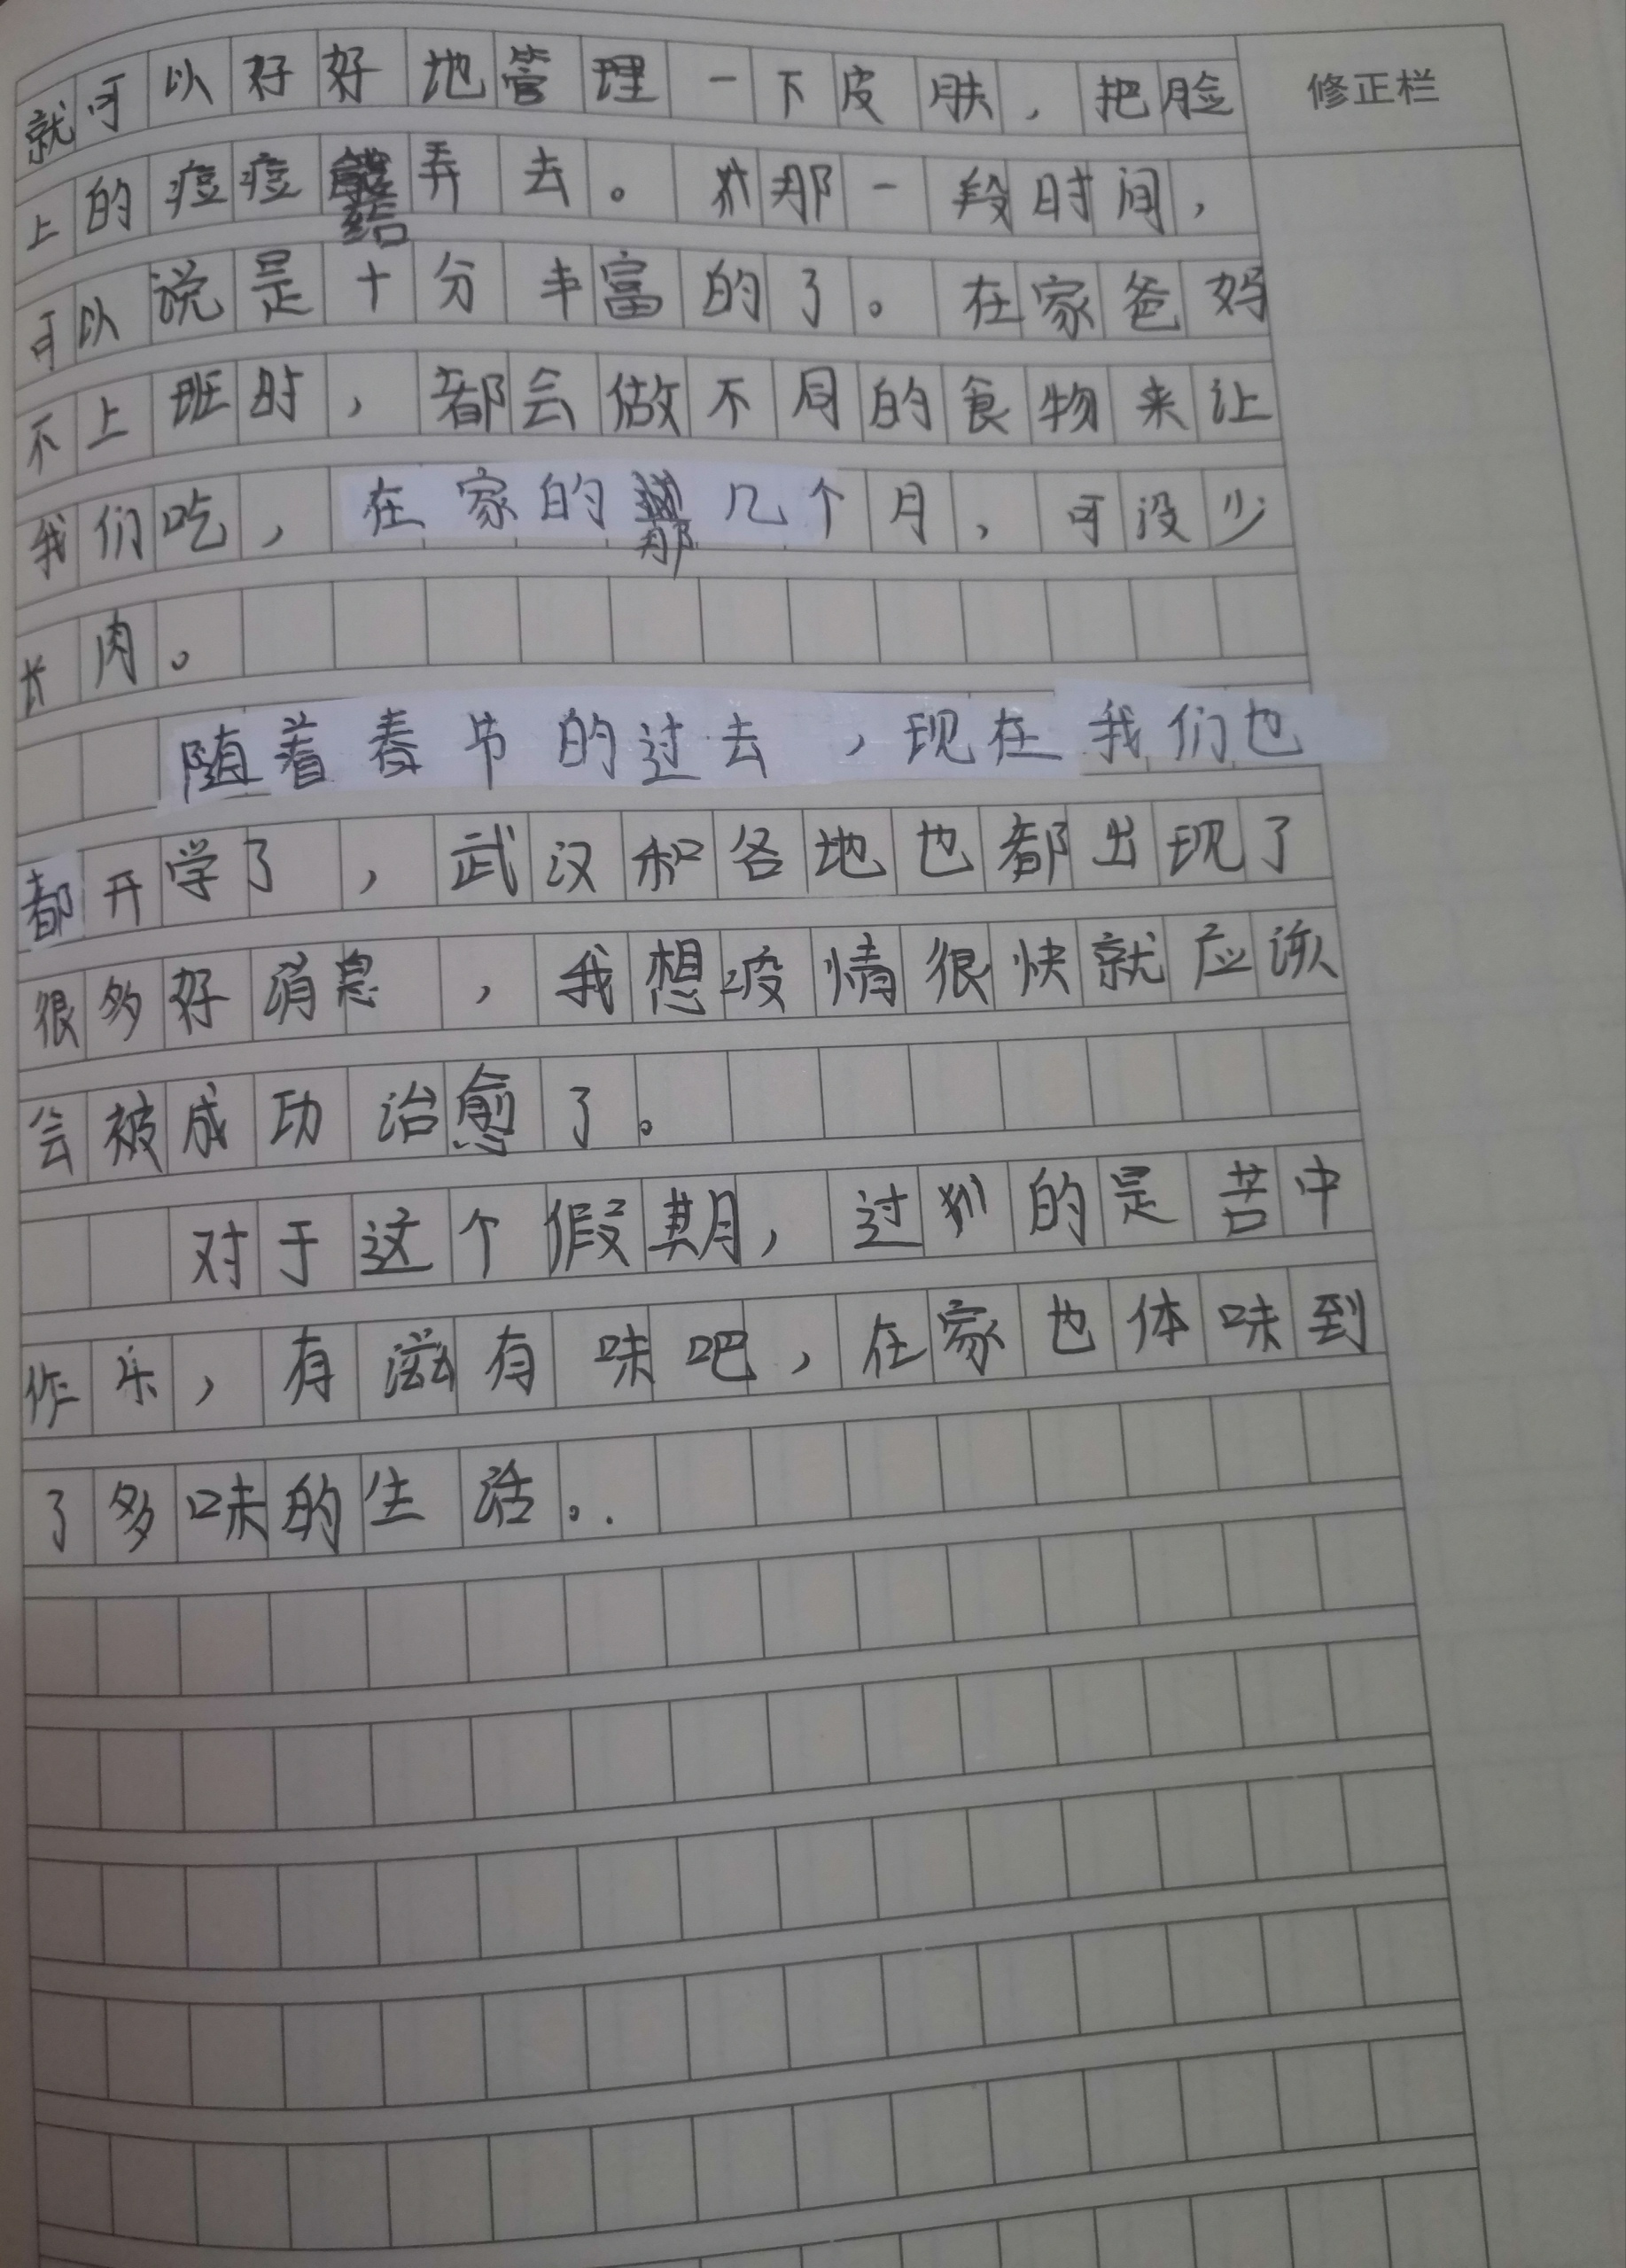 就可以好好地管理一下皮肤，把脸
修正栏
上的痘痘给弄去。那一段时间，
可以说是十分丰富的了。在家爸妈
不上班时，都会做不同的食物来让
我们吃，在家的那几个月，可没少
长肉。
随着春节的过去，现在我们也
都开学了，武汉和各地也都出现了
很多好消息，我想疫情很快就应该
会被成功治愈了。
对于这个假期，过的是苦中
作乐，有滋有味吧，在家也体味到
了多味的生活。